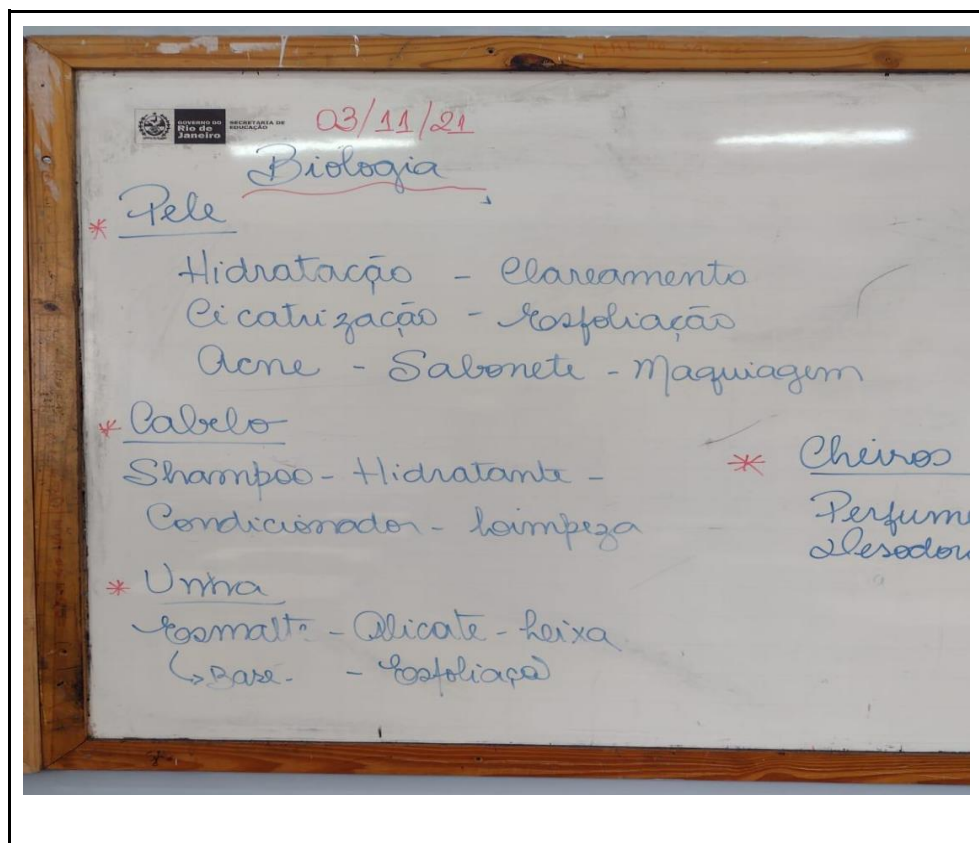 GOVERNO DO
Rio de
Janeiro
SECRETARIA DE
EDUCAÇÃO
03/11/21
Biologia
* Pele
Hidratação - Clareamento
Cicatrização - Esfoliação
Acne - Sabonete - Maquiagem
* Cabelo
Shampoo - Hidratante -
Condicionador - Limpeza
* Unha
Esmalte - Alicate - Leixa
↳ Base - - Esfoliaçã
* Cheiros
Perfume
Desodor